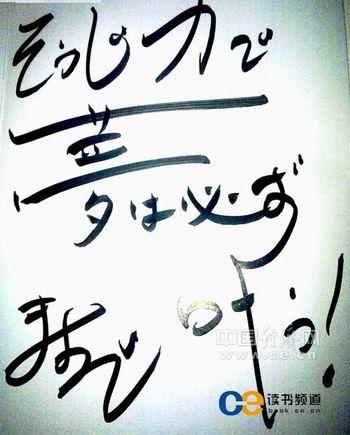 そうじ力で
夢は必ず
叶う!
中国经济网
www.ce.cn
ce 读书频道
book.ce.cn